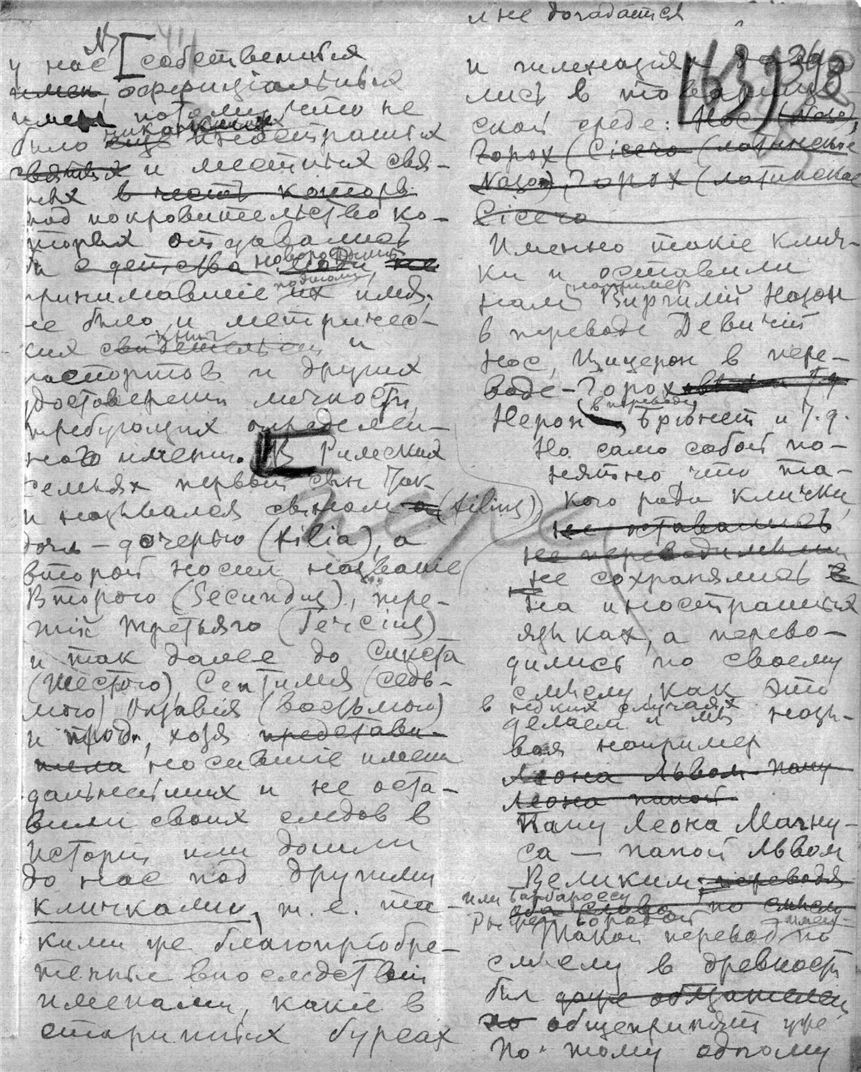 мне догадаться
N
у нас [собственныя
имен официальныя
имен потому что не
было никаких иностранных
святых и местных свя-
тых в честь которых
под покровительство ко-
торых отдавались
и с детства новорожденные
принимавшие их имя,
не было и метричес-
ких книг и
паспортов и других
удостоверений личности,
требующих определен-
ного имени. В Римских
семьях первый сын так
и назывался сыном (filius)
дочь – дочерью (filia), а
второй носил название
Второго (Secundus), тре-
тий Третьяго (Терсius)
и так далее до Сикста
(Шестого), Септимия (седь-
мого) Октавия (восьмого)
и проч., хотя представи-
тели носившие имена
дальнейших и не оста-
вили своих следов в
истории, или дошли
до нас под другими
кличками, т. е. та-
кими же благоприобре-
тенные впоследствии
именами, какие в
старинных бурсах
163) 348
и гимназиях
лись в товарище-
ской среде: Нос (Naso),
Горох (Cicero (латинское
Naso), Горох (латинское
Cicero
Именно такие клич-
ки и оставили
нам например Виргилий Назон
в переводе Девичий
Нос, Цицерон в пере-
воде – Горох
Нерон в переводе Брюнет и т. д.
Но само собой по-
нятно что та-
кого рода клички,
не оставались
не переводимыми
не сохранялись
на иностранных
языках, а перево-
дились по своему
смыслу, как это
в редких случаях
делаем и мы назы-
вая например
Леона Львом папу
Леона папой
Папу Леона Магну-
са – папой Львом
Великим, переводя
или Барбароссу
два слова по смыслу
Рыжей Бородой
Такой перевод по
смыслу в древности
был даже обязателен
но общепринят уже
по тому одному